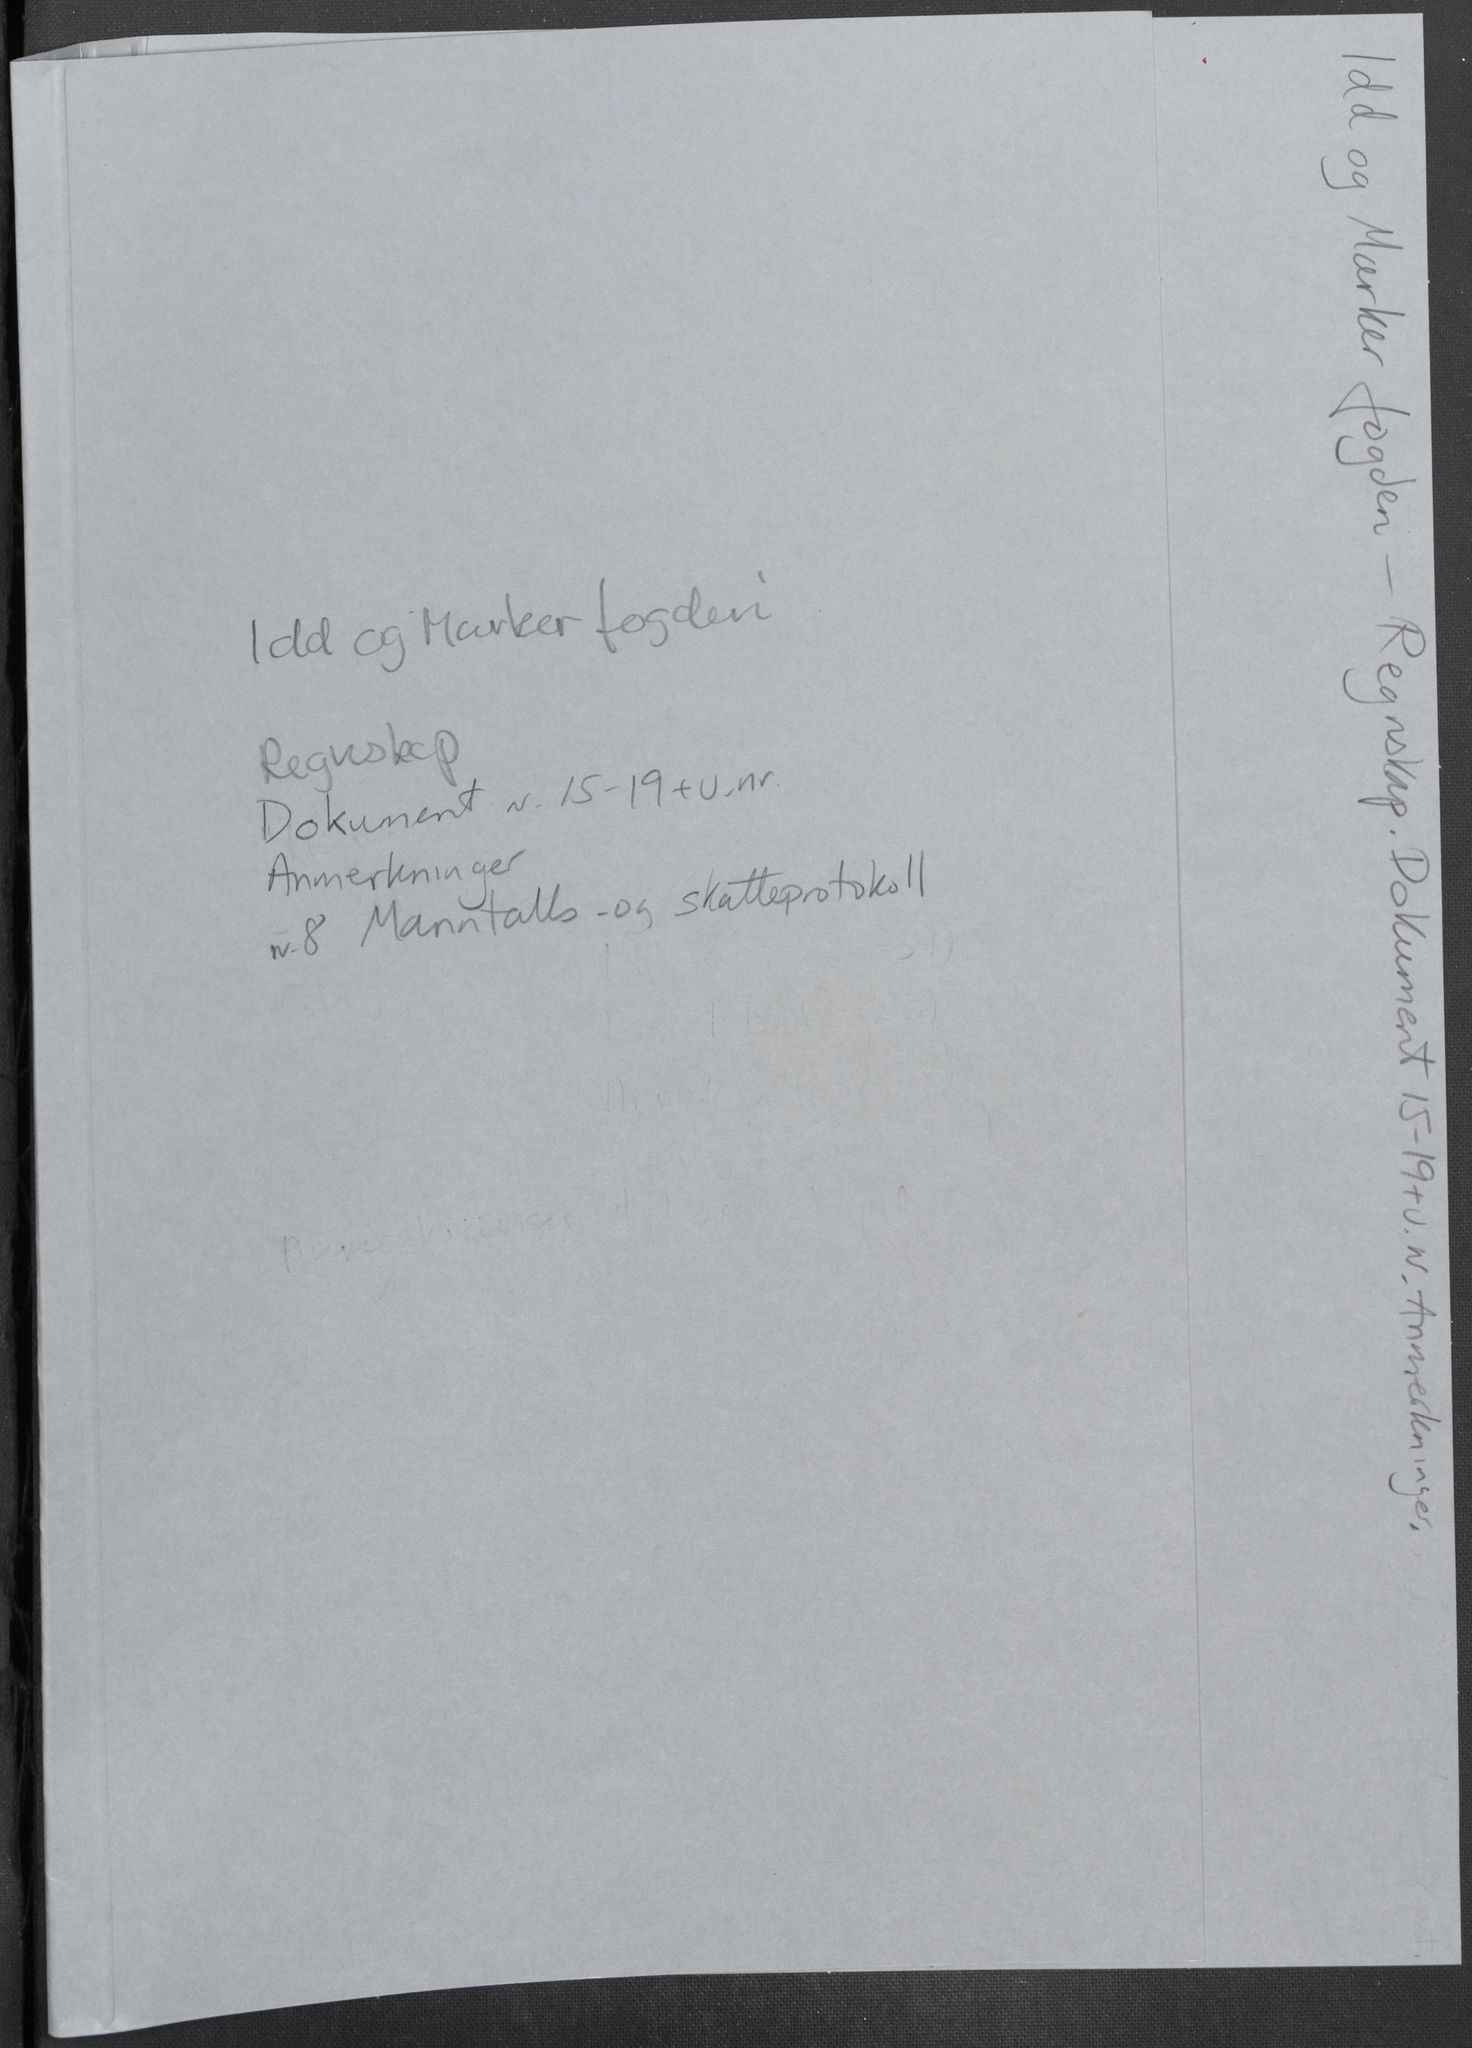 Idd og Marker fogderi
Regnskap
Dokument nr. 15-19+u.nr.
Anmerkninger
nr. 8 Manntalls-og skatteprotokoll
Idd og Marker fogderi - Regnskap. Dokument 15-19+u. nr. Anmerkninger.